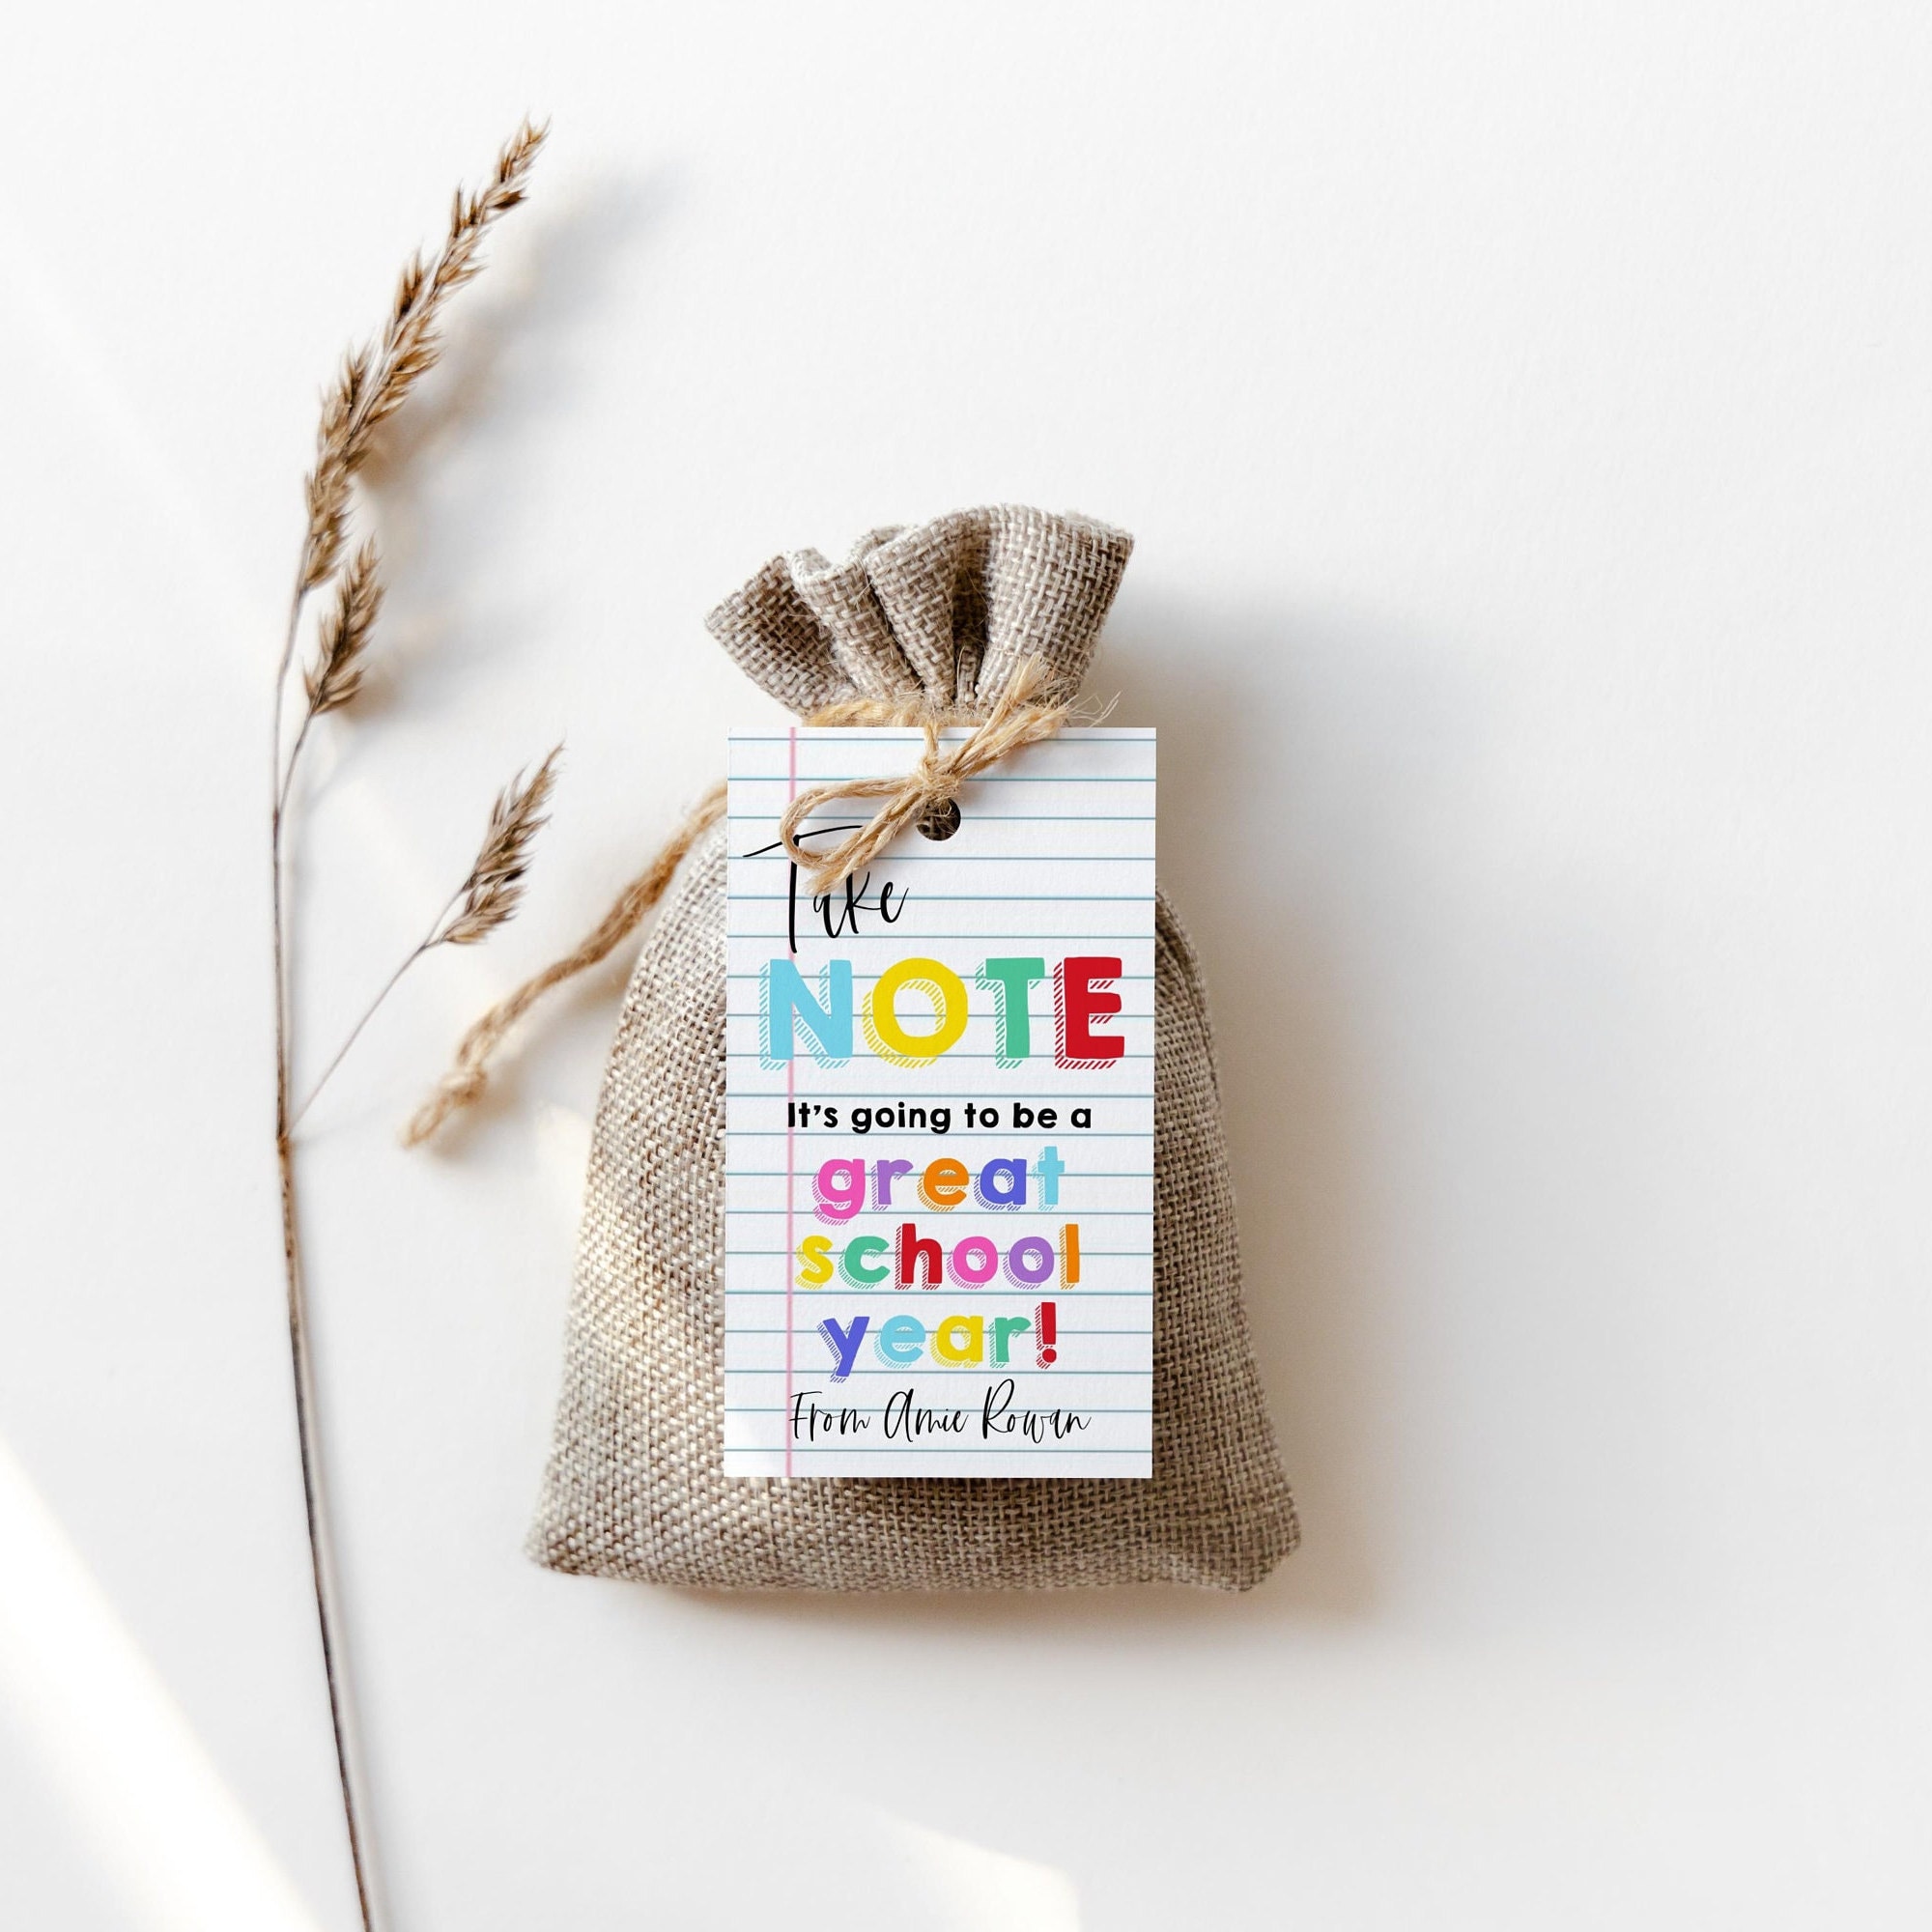 Take
NOTE
It's going to be a
great
school
year!
From Amie Rowan